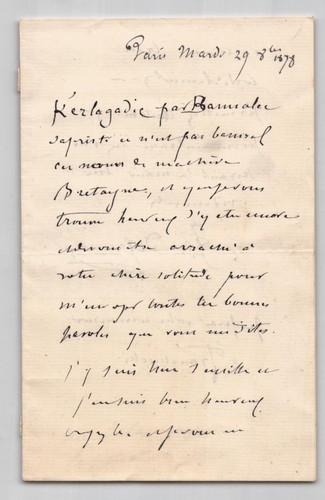 Paris Mardi 29 8bre 1878
Kerlagadic par Bannalec
sapristi ce n'est pas banal
ces noms de ma chère
Bretagne, et que je vous
trouve heureux d'y être encore
et de vous être arraché à
votre chère solitude pour
m'envoyer toutes les bonnes
paroles que vous me dites.
J'y suis bien sensible et
j'en suis bien heureux